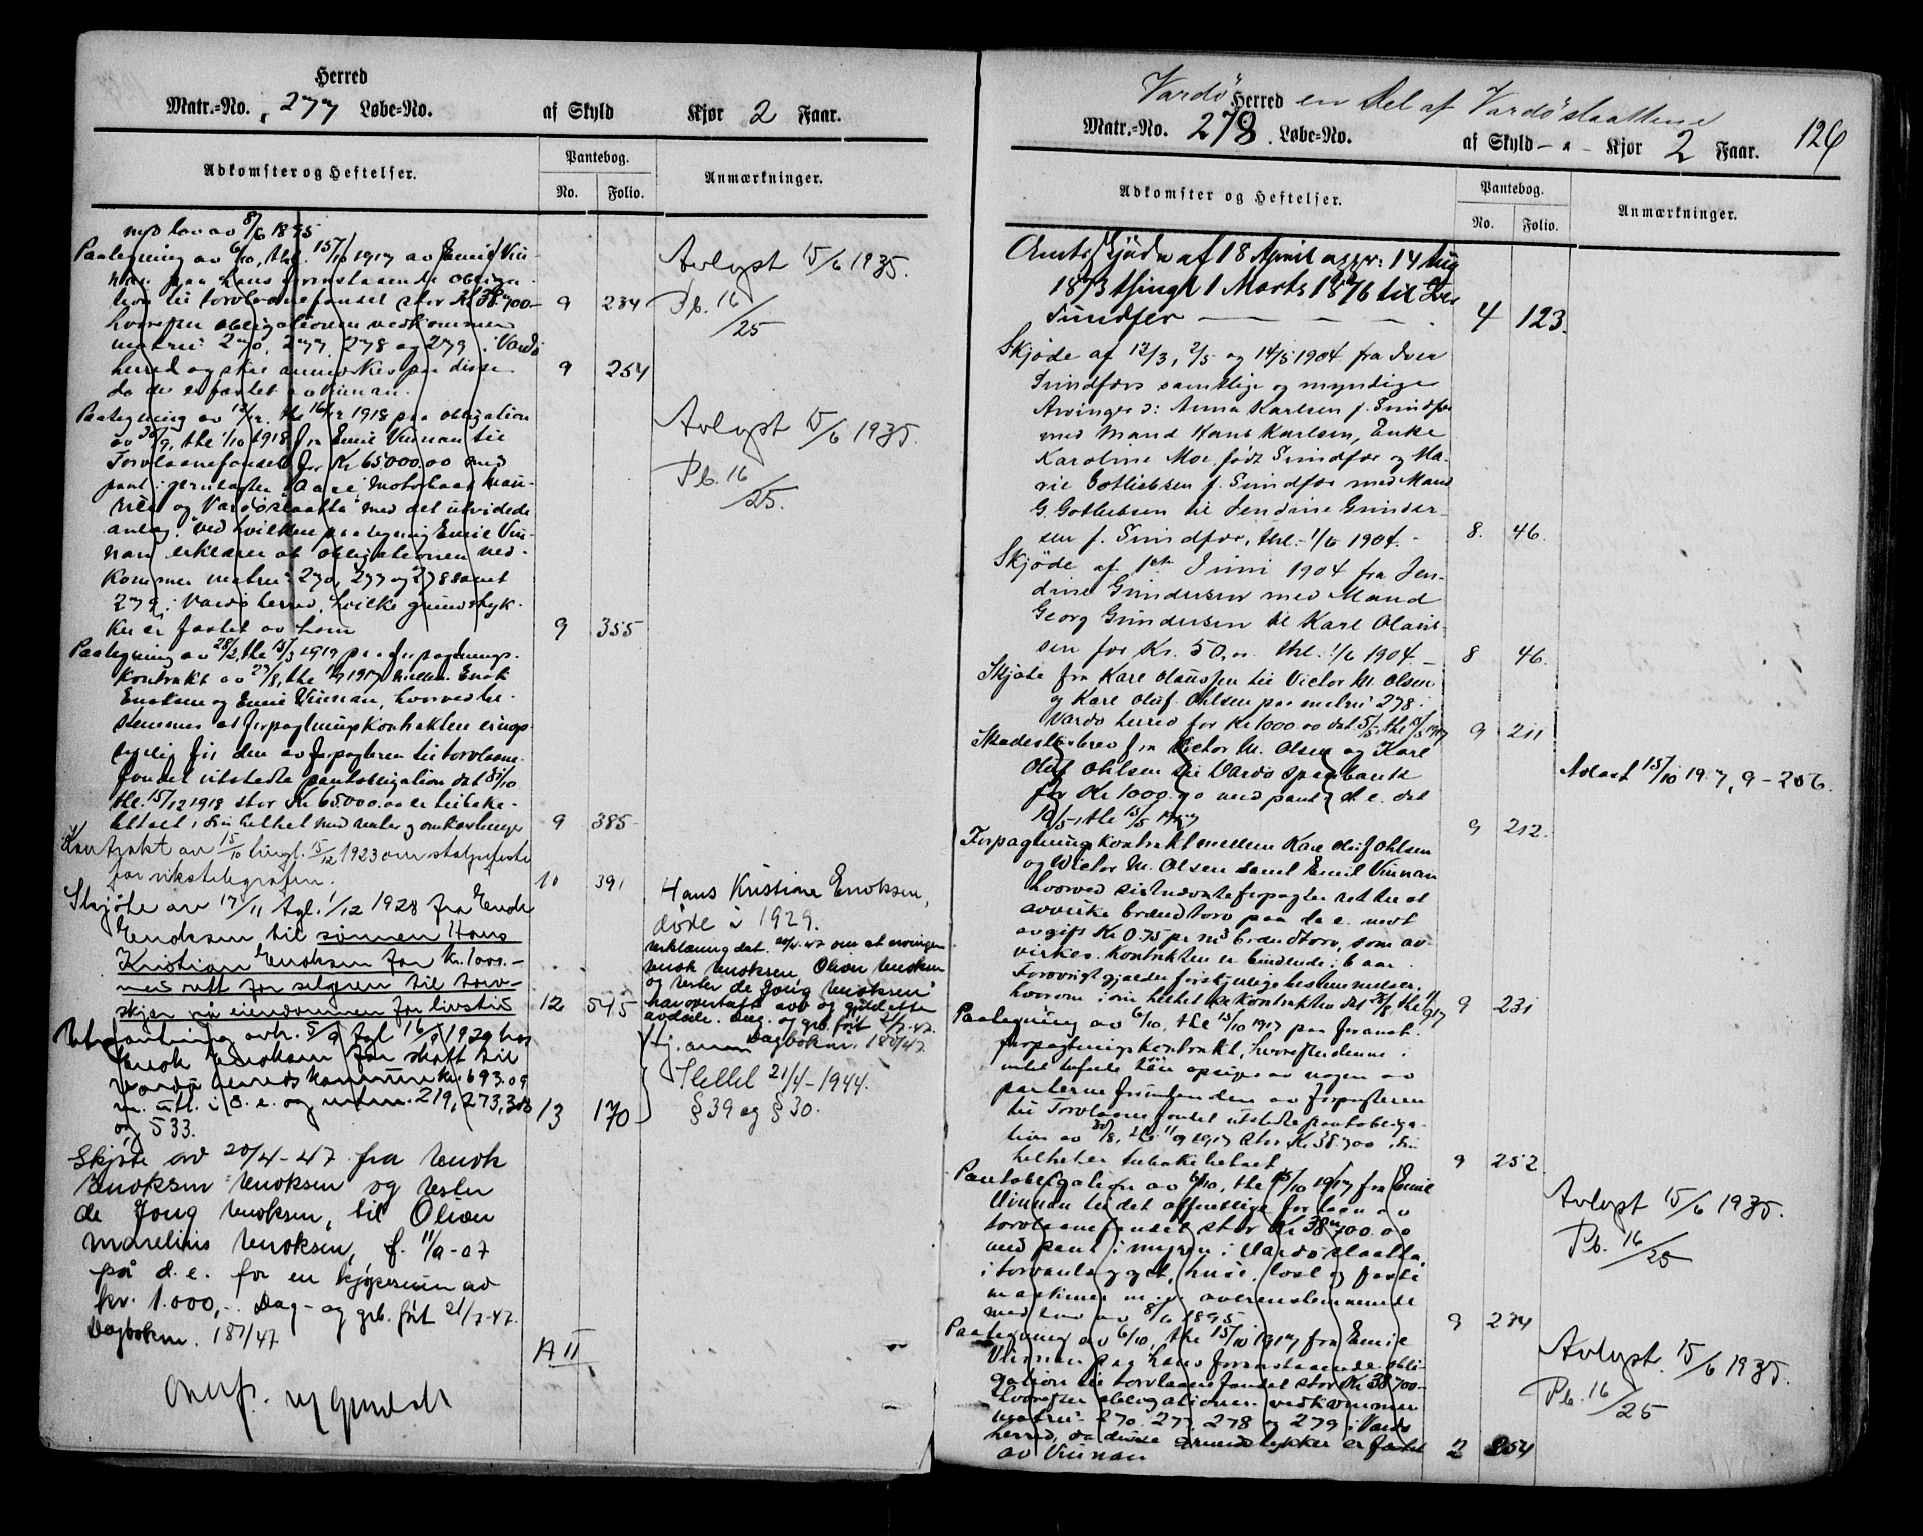 Herred
Matr.=No. 277 Løbe=No. af Skyld Kjør 2 Faar.
Adkomster og Heftelser. Pantebog. No. Folio. Anmærkninger.
med lov av 8/6 1895
Paategning av 6/10, thl. 15/10 1917 av Emil Vin-
nan paa hans foranstaaende obliga-
tion til torvlaanefondet stor Kr 38700- 9 234
hvorefter obligationen vedkommer
matrn: 270, 277, 278 og 279 i Vardø
herred og skal anmerkes paa disse 9 254
da de er fæstet av Vinnan.
Avlyst 15/6 1935.
Pb. 16/25
Paategning av 12/12, thl 16/12 1918 paa obligation
av 30/9, thl 1/10 1918 fra Emil Vinnan til
Torvlaanefondet for Kr 65000.00 med
pant i
nile og Vardøslaatta med det utvidede
anlæg. Ved hvilken paategning Emil Vin-
nan erklærer at obligationen ved-
kommer matrn: 270, 277 og 278 samt
279 i Vardø herred, hvilke grundstyk-
ker er fæstet av ham 9 355
Avlyst 15/6 1935.
Pb. 16/25.
Paategning av 28/2, thl 15/3 1919 paa forpagtnings-
kontrakt av 27/8, thl 1/9 1917 mellem Enok
Enoksen og Emil Vinnan, hvorved be-
stemmes at forpagtningskontrakten er uop-
sigelig før den av forpagteren til torvlaane-
fondet utstedte pantobligation dat 31/10
thl. 15/12 1918 stor Kr 65000.00 er tilbake-
betalt i sin helhet med renter og omkostninger 9 385
Kontrakt av 15/10 tingl. 15/12 1923 om stolpefeste
for rikstelegrafen. 10 391
Skjøte av 17/11 tgl. 1/12 1928 fra Enok
Enoksen til sønnen Hans
Kristian Enoksen for Kr. 1000.-
med rett for selgeren til torv-
skjær på eiendommen for livstid 12 545
Hans Kristian Enoksen,
døde i 1929.
Erklæring dat. 20/4-47 om at arvingene
Enok Enoksen, Oliver Enoksen
og Ester de Jong Enoksen
har overtatt arv og gjeld etter
avdøde. Dag. og grb. ført 21/7-47.
Dagboknr. 187/47
Utpantning avh. 5/9 tgl 16/9 1929 hos
Enok Enoksen for skatt til
Vardø herredskommune kr. 693.09
m. utl. i d. e. og mnr. 219, 273, 303 13 170
og 533.
Slettet 21/4-1944.
§ 39 og § 30.
Skjøte av 20/4-47 fra Enok
Enoksen Enoksen og Ester
de Jong Enoksen, til Oliver
Marelius Enoksen, f. 11/9-07
på d. e. for en kjøpesum av
kr. 1.000,-. Dag- og grb. ført 21/7-47.
Dagboknr. 187/47
A II
Overf. ny grundb.
Vardø Herred en Del af Vardøslaattene
Matr.=No. 278. Løbe=No. af Skyld - " - Kjør 2 Faar. 126
Adkomster og Heftelser. Pantebog. No. Folio. Anmærkninger.
Amts Skjøde af 18 April appr: 14 Aug
1873 thingl 1 Marts 1876 til Iver
Sundfær 4 123.
Skjøde af 12/3, 2/5 og 14/5 1904 fra Iver
Sundfærs samtlige og myndige
Arvinger ɔ: Anna Karlsen f. Sundfær
med Mand Hans Karlsen, Enke
Karoline Moe født Sundfær og Ma-
rie Gotliebsen f. Sundfær med Mand
G. Gotliebsen til Jendine Gunder-
sen f. Sundfær, thl. 1/6 1904. 8. 46.
Skjøde af 1ste Juni 1904 fra Jen-
dine Gundersen med Mand
Georg Gundersen til Karl Olaus-
sen for Kr. 50,00 thl. 1/6 1904. 8 46.
Skjøte fra Karl Olaussen til Victor M. Olsen
og Karl Oluf Ohlsen paa matrn: 278 i
Vardø herred for Kr 1000.00 dat 5/5, thl 15/5 1917 9 211
Skadesløsbrev fra Victor M. Olsen og Karl
Oluf Ohlsen til Vardø sparebank
for Kr 1000.00 med pant i d. e. dat
10/5, thl 15/5 1917 9 212.
Avlæst 15/10 1917, 9-256.
Forpagtningskontrakt mellem Karl Oluf Ohlsen
og Victor M. Olsen samt Emil Vinnan
hvorved sistnævnte forpagter ret til at
avvirke brændtorv paa d. e. mot
avgift Kr 0.75 pr m3 brændtorv, som av-
virkes. Kontrakten er bindende i 6 aar.
Forøvrigt gjælder forskjellige bestemmelser,
hvorom i sin helhet se kontrakten dat 25/8, thl 1/9 1917 9 231
Paategning av 6/10, thl 15/10 1917 paa foranst.
forpagtningskontrakt, hvorefter denne i
intet tilfælde kan opsiges av nogen av
parterne forinden den av forpagteren
til Torvlaanefondet utstedte pantobliga-
tion av 30/8, thl 11/9 1917 stor Kr. 38.700 i sin
helhet er tilbakebetalt 9 252
Pantobligation av 6/10, thl 15/10 1917 fra Emil
Vinnan til det offentlige for laan av
torvlaanefondet stor Kr 38700.00
med pant i myren i Vardøslaatta,
i torvanlægget, huse, løst og fast i
maskiner m. v. overensstemmende
med lov av 8/6 1895 9 234
Avlyst 15/6 1935.
Pb. 16/25
Paategning av 6/10, thl 15/10 1917 fra Emil
Vinnan paa hans foranstaaende obli-
gation til torvlaanefondet stor Kr 38700-
hvorefter obligationen vedkommer
matrn: 270, 277, 278 og 279 i Vardø
herred, da disse grundstykker er fæstet 9 254
av Vinnan
Avlyst. 15/6 1935.
Pb. 16/25